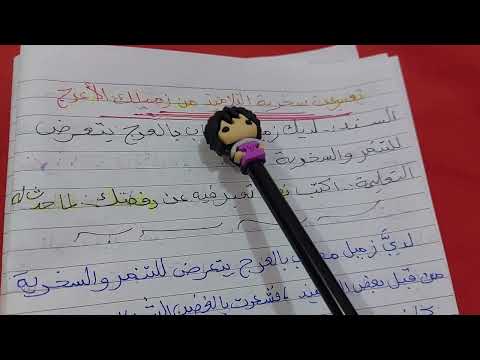 سخرية التلاميذ من زميلك الأعرج
السند: لديك زميل بالعرج يتعرض
للتنمر والسخرية
التعليمة: اكتب تعبر فيه عن رفضك لما حدث له
لديَّ زميل بالعرج يتعرض للتنمر والسخرية
من قبل بعض فشعرت بالغضب